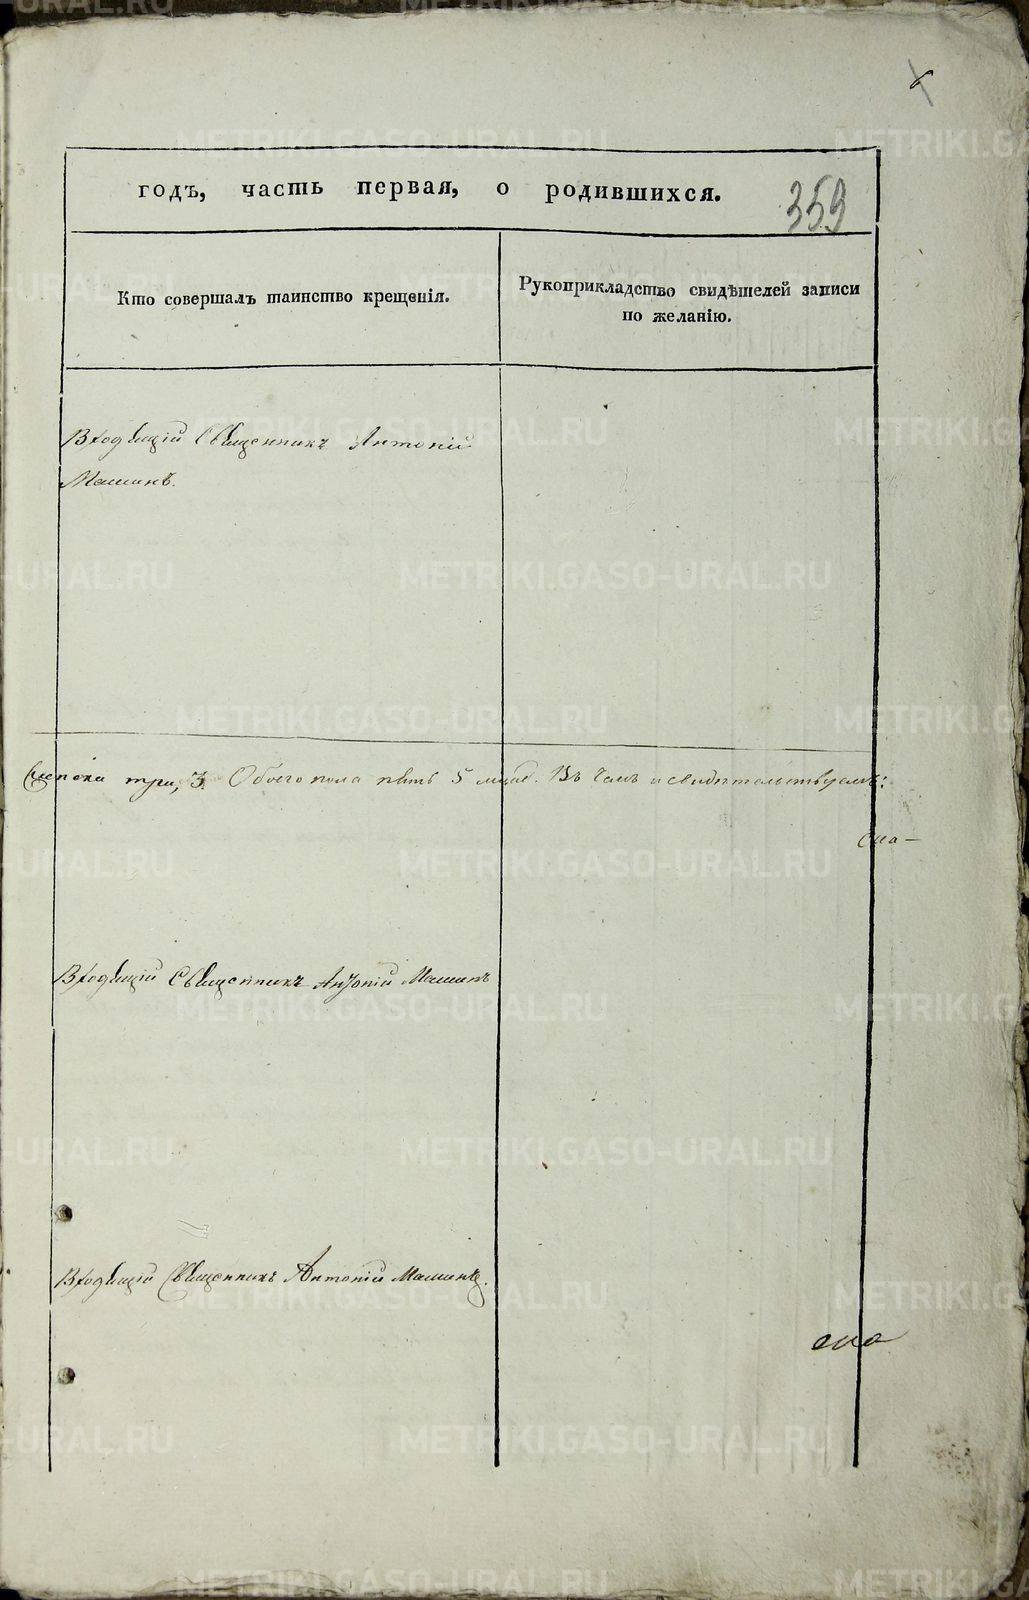 6
годъ, часть первая, о родившихся.
359
Кто совершалъ таинство крещенія.
Рукоприкладство свидѣтелей записи
по желанію.
Входящій Священникъ Антоній
Машинъ.
три, 3. Обоего пола пять 5 млад. Въ чемъ и свидѣтельствуемъ:
Входящій Священникъ Антоній Машинъ
Входящій Священникъ Антоній Машинъ.
METRIKI.GASO-URAL.RU